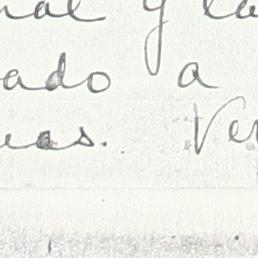 nal y la
ado a
uas. Ver